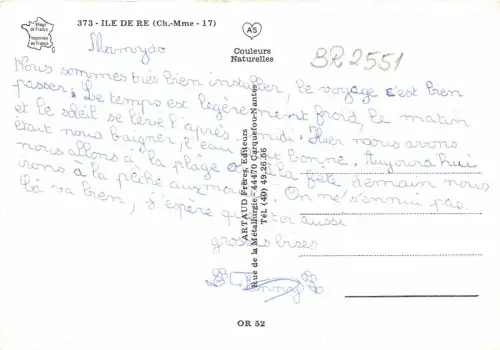 Image
de France
Imprimée
en France
373 - ILE DE RE (Ch.-Mme - 17)
AS
Couleurs
Naturelles
BR 2551
Nous sommes très bien installer, le voyage c'est bien
passer. Le temps est légèrement froid, le matin
et le soleil se lève l'après midi. Hier nous avons
était nous baigner, l'eau était bonne. Aujourd'hui
nous allons à la plage et à la fête, demain nous
irons à la pêche aux moules. On me s'ennui pas.
Là va bien, j'espère que toi aussi
grosses bises
ARTAUD Frères, Editeurs
Rue de la Métallurgie - 44470 Carquefou-Nantes
Tél. (40) 49.26.56
OR 52